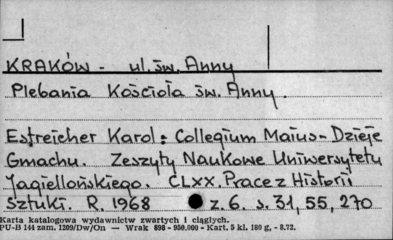 KRAKÓW - ul. św. Anny
Plebania Kościoła św. Anny.
Estreicher Karol: Collegium Maius - Dzieje
Gmachu. Zeszyty Naukowe Uniwersytetu
Jagiellońskiego. CLXX. Prace z Historii
Sztuki. R. 1968 z. 6. s. 31, 55, 270
Karta katalogowa wydawnictw zwartych i ciągłych.
PU-B 144 zam. 1209/Dw/On — Wrak 898 - 950.000 - Kart. 5 kl. 180 g, - 8.72.